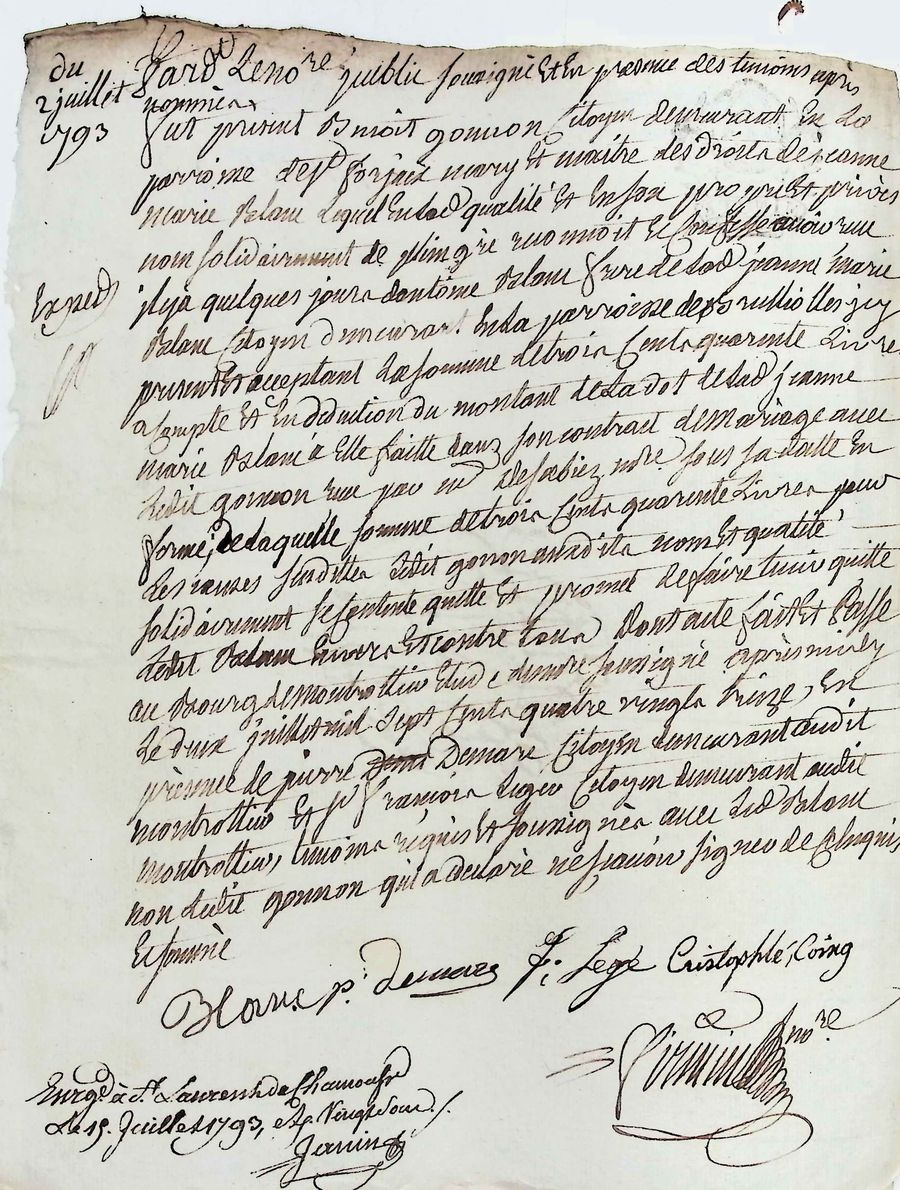 du
2 juillet
1793
Pard.t Le no.re public soussigné Et En presence des temoins après
nommés
fut present Benoit gonnon Citoyen demeurant En La
parroisse de S.t forjeux mary Et maitre des droits de jeanne
marie Blanc Lequel En lad qualité Et En son propre Et privés
nom solidairement de plein gré reconnoit Et Confesse avoir recu
il y a quelques jours d'antoine Blanc frere de lad jeanne marie
Expedié
Blanc Citoyen demeurant En La parroisse de Brulliolles icy
present Et acceptant La somme de trois Cents quarente Livres
a Compte Et En deduction du montant de La dot de lad jeanne
marie Blanc a Elle faitte dans son contrat de mariage avec
Ledit gonnon recu par no.re sous sa datte En
forme, de Laquelle somme de trois Cents quarente Livres pour
Les causes susdittes Ledit gonon auxdits nom Et qualité
solidairement se contente quitte Et promet de faire tenir quitte
Ledit Blanc Envers Et contre tous Dont acte fait Et Passé
au Bourg de montrottier Etude du no.re soussigné après midy
Le deux juillet mil sept Cents quatre vingts treize, En
présence de pierre Demare Citoyen demeurant audit
montrottier Et s.r francois Leger Citoyen demeurant audit
montrottier, temoins requis Et soussignés avec Led Blanc
non Ledit gonnon qui a declaré ne scavoir signer de Ce Enquis
Et sommé
Blanc p. demare f. Legé Cristophle, Coing
no.re
Enrg.é à S.t Laurent de Chamousse
Le 15 Juillet 1793, R. Vingt sous /.
Janin